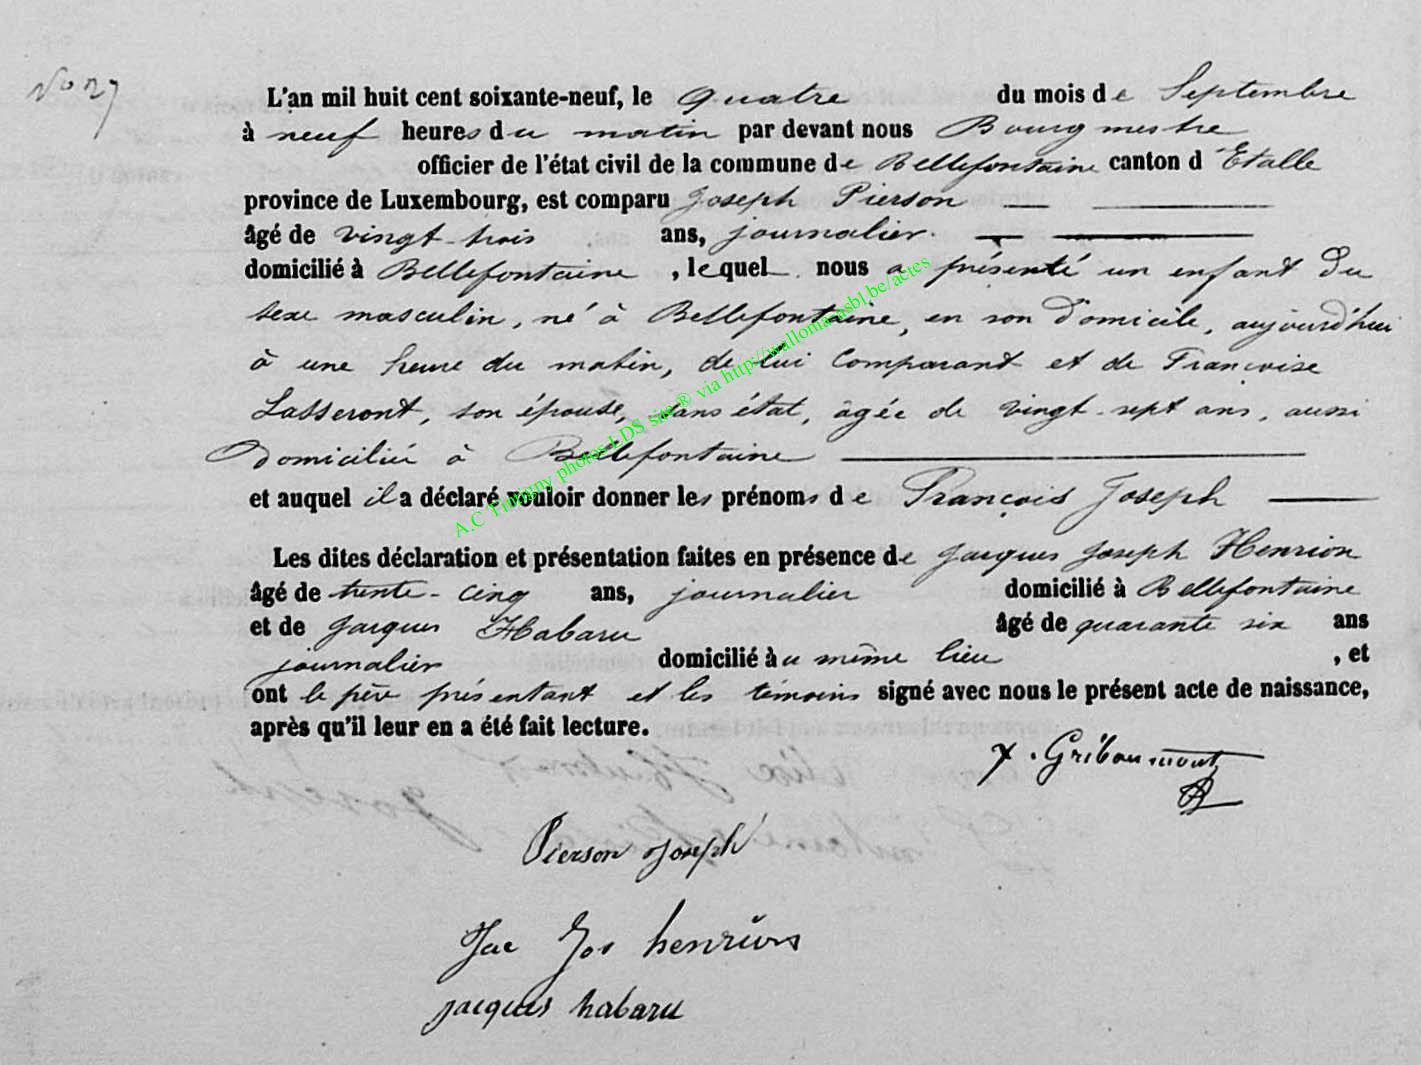 No 27
L'an mil huit cent soixante-neuf, le quatre du mois de Septembre
à neuf heures du matin par devant nous Bourgmestre
officier de l'état civil de la commune de Bellefontaine canton d'Etalle
province de Luxembourg, est comparu Joseph Pierson
âgé de vingt-trois ans, journalier
domicilié à Bellefontaine, lequel nous a présenté un enfant du
sexe masculin, né à Bellefontaine, en son domicile, aujourd'hui
à une heure du matin, de lui comparant et de Françoise
Lasseront, son épouse, sans état, âgée de vingt-sept ans, aussi
domiciliée à Bellefontaine
et auquel il a déclaré vouloir donner les prénoms de François Joseph
Les dites déclaration et présentation faites en présence de Jacques Joseph Henrion
âgé de trente-cinq ans, journalier domicilié à Bellefontaine
et de Jacques Habaru âgé de quarante six ans
journalier domicilié au même lieu, et
ont le père présentant et les témoins signé avec nous le présent acte de naissance,
après qu'il leur en a été fait lecture.
Gribaumont
Pierson Joseph
Jac Jos henrion
jacques habaru
A.C Tintigny photos LDS site ® via http://wallonia-asbl.be/actes